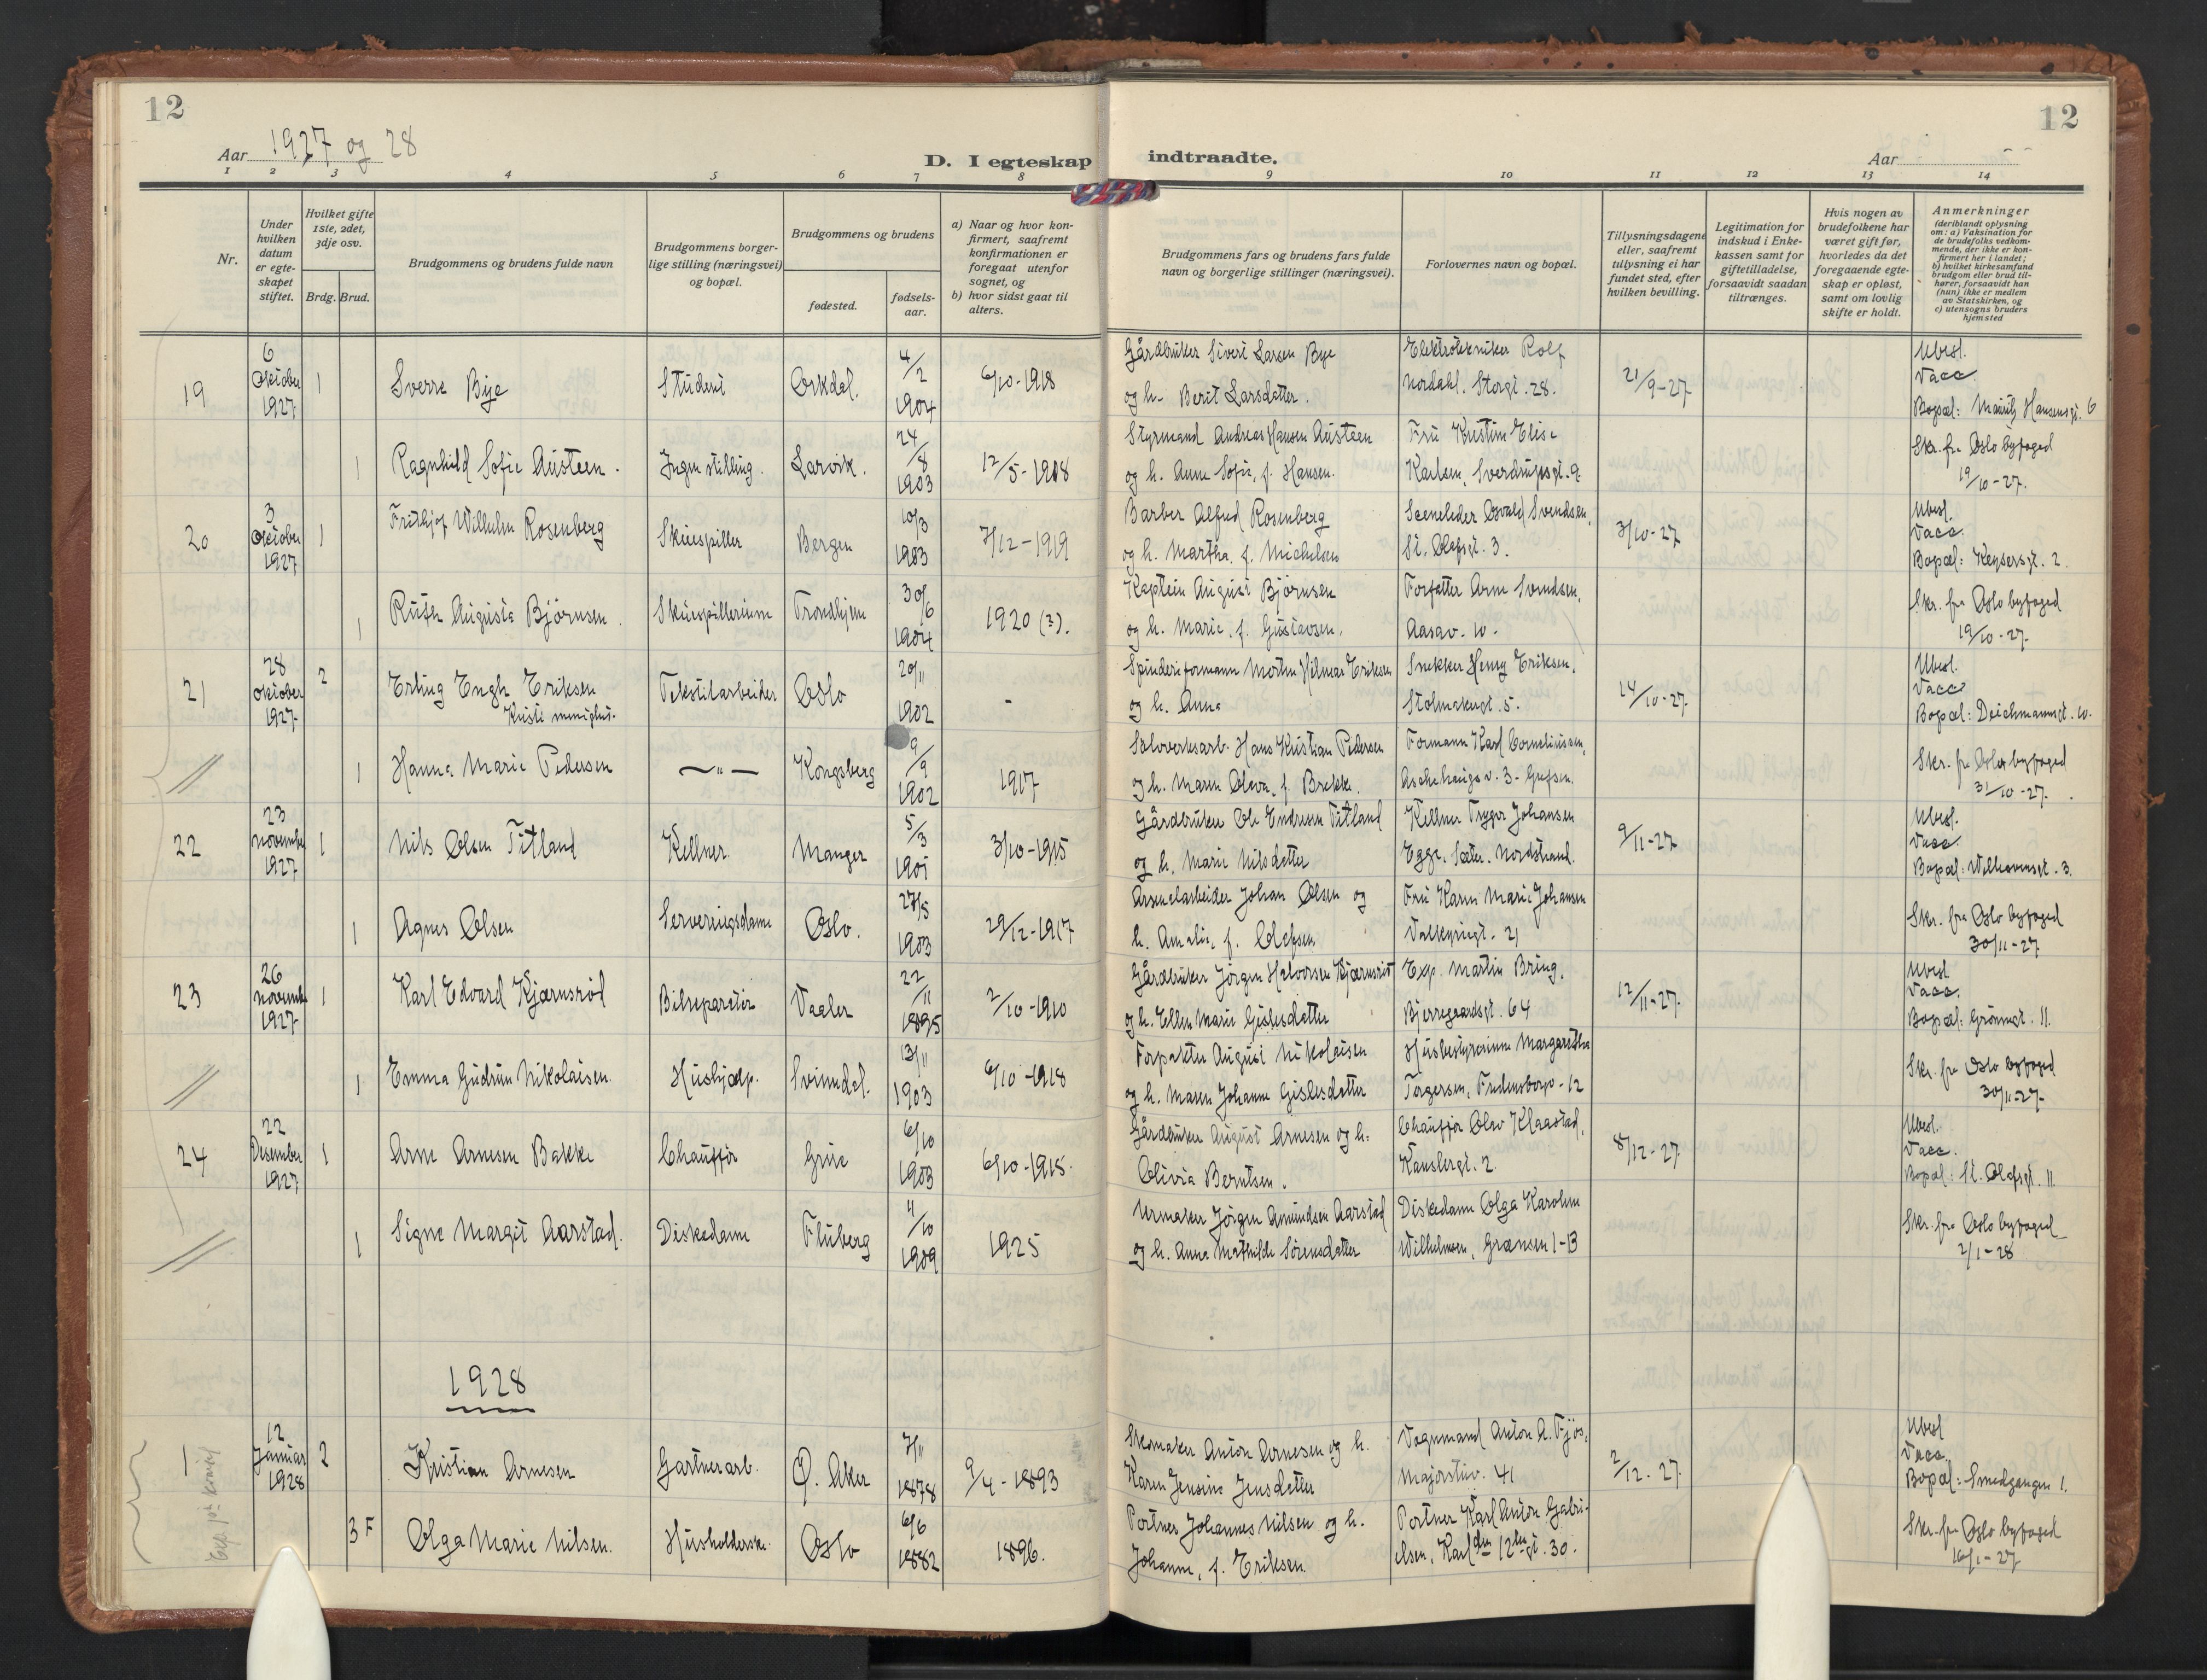 12
12
Aar 1927 og 28
D. I egteskap indtraadte.
Aar
1 2 3 4 5 6 7 8 9 10 11 12 13 14
Nr.
Under hvilken datum er egteskapet stiftet.
Hvilket gifte 1ste, 2det, 3dje osv.
Brdg. Brud.
Brudgommens og brudens fulde navn
Brudgommens borgerlige stilling (næringsvei) og bopæl.
Brudgommens og brudens
fødested.
fødselsaar.
a) Naar og hvor konfirmert, saafremt konfirmationen er foregaat utenfor sognet, og
b) hvor sidst gaat til alters.
Brudgommens fars og brudens fars fulde navn og borgerlige stillinger (næringsvei).
Forlovernes navn og bopæl.
Tillysningsdagene eller, saafremt tillysning ei har fundet sted, efter hvilken bevilling.
Legitimation for indskud i Enkekassen samt for giftetilladelse, forsaavidt saadan tiltrænges.
Hvis nogen av brudefolkene har været gift før, hvorledes da det foregaaende egteskap er opløst, samt om lovlig skifte er holdt.
Anmerkninger (deriblandt oplysning om: a) Vaksination for de brudefolks vedkommende, der ikke er konfirmert her i landet; b) hvilket kirkesamfund brudgom eller brud tilhører, forsaavidt han (hun) ikke er medlem av Statskirken, og c) utensogns bruders hjemsted
19 6 Oktober 1927 1 Sverre Bye Student Orkdal. 4/2 1904 6/10-1918 Gårdbruker Sivert Larsen Bye og h. Berit Larsdatter. Elektrotekniker Rolf Nordahl. Storgt. 28. 21/9-27 Ubesl. Vacc. Bopæl: Mauritz Hansensgt. 6
1 Ragnhild Sofie Austeen. Ingen stilling. Larvik. 24/8 1903 12/5-1918 Styrmand Andreas Hansen Austeen og h. Anne Sofie, f. Hansen. Fru Kristine Elise Karlsen, Sverdrupsgt. 9 Skr. fra Oslo byfoged 19/10-27.
20 3 Oktober 1927 1 Frithjof Wilhelm Rosenberg Skuespiller Bergen 10/3 1903 7/12-1919 Barber Alfred Rosenberg og h. Martha f. Michelsen Sceneleder Osvald Svendsen, St. Olafsgt. 3. 3/10-27 Ubesl. Vacc. Bopæl: Keysersgt. 2.
1 Ruth Augusta Bjørnsen. Skuespillerinne Trondhjem 30/6 1904 1920 (?). Kaptein August Bjørnsen og h. Marie f. Gustavsen. Forfatter Arne Svendsen, Aasav. 10. Skr. fra Oslo byfoged 19/10-27.
21 28 Oktober 1927 2 Erling Engh Eriksen Kristi menighet. Tekstilarbeider Oslo 20/11 1902 - Spinderiformann Morten Hilmar Eriksen og h. Anna Snekker Henry Eriksen, Stolmakergt. 5. 14/10-27. Ubesl. Vacc Bopæl: Deichmannsgt. 10.
1 Hanna Marie Pedersen —"— Kongsberg 9/9 1902 1917 Sølvverksarb. Hans Kristian Pedersen og h. Maren Oleva, f. Brekke. Formann Karl Corneliussen, Aschehougsv. 3. Grefsen. Skr. fra Oslo byfoged 31/10-27.
22 23 November 1927 1 Nils Olsen Titland Kellner. Manger 5/3 1901 3/10-1915 Gårdbruker Ole Endresen Titland og h. Marie Nilsdatter Kellner Trygve Johansen Egge. Sæter. Nordstrand. 9/11-27 Ubesl. Vacc. Bopæl: Welhavensgt. 3.
1 Agnes Olsen Serveringsdame Oslo. 27/5 1903 29/12-1917 Arsenalarbeider Johan Olsen og h. Amalie, f. Olafsen Fru Karen Marie Johansen Valkyriegt. 21 Skr. fra Oslo byfoged 30/11-27
23 26 November 1927 1 Karl Edvard Kjærnsrød Bilreparatør Vaaler 22/11 1895 2/10-1910 Gårdbruker Jørgen Halvorsen Kjærnsrød og h. Ellen Marie Gislesdatter Exp. Martin Bring, Bjerregaardsgt. 64 12/11-27. Ubesl. Vacc. Bopæl: Grønnegt. 11.
1 Emma Gudrun Nikolaisen. Hushjælp. Svinndal. 13/11 1903 6/10-1918 Forpakter August Nikolaisen og h. Maren Johanne Gislesdatter Husbestyrerinne Margaretha Torgersen, Fredensborgv. 12 Skr. fra Oslo byfoged 30/11-27.
24 22 Desember 1927 1 Arne Arnesen Bakke Chauffør Grue 6/10 1903 6/10-1918. Gårdbruker August Arnesen og h. Olivia Berntsen. Chauffør Olav Klaastad, Kanslergt. 2. 8/12-27. Ubesl. Vacc. Bopæl: St. Olafsgt. 11.
1 Signe Margit Aarstad. Diskedame Fluberg 11/10 1909 1925 Urmaker Jørgen Amundsen Aarstad og h. Anna Mathilde Sørensdatter Diskedame Olga Karoline Wilhelmsen, Grænsen 1-B Skr. fra Oslo byfoged 2/1-28
1928
1 12 Januar 1928 2 Kristian Arnesen Gartnerarb. Ø. Aker 7/11 1878 9/4-1893 Skomaker Anton Arnesen og h. Karen Jensine Jensdatter Vognmand Anton A. Fjøs, Majorstuv. 41 2/12-27. Ubesl Vacc. Bopæl: Smedgangen 1.
3 F Olga Marie Nilsen. Husholderske. Oslo 6/6 1882 1896. Portner Johannes Nilsen og h. Johanne, f. Eriksen. Portner Karl Anton Gabrielsen, Karl den 12tes gt. 30. Skr. fra Oslo byfoged 16/1-27